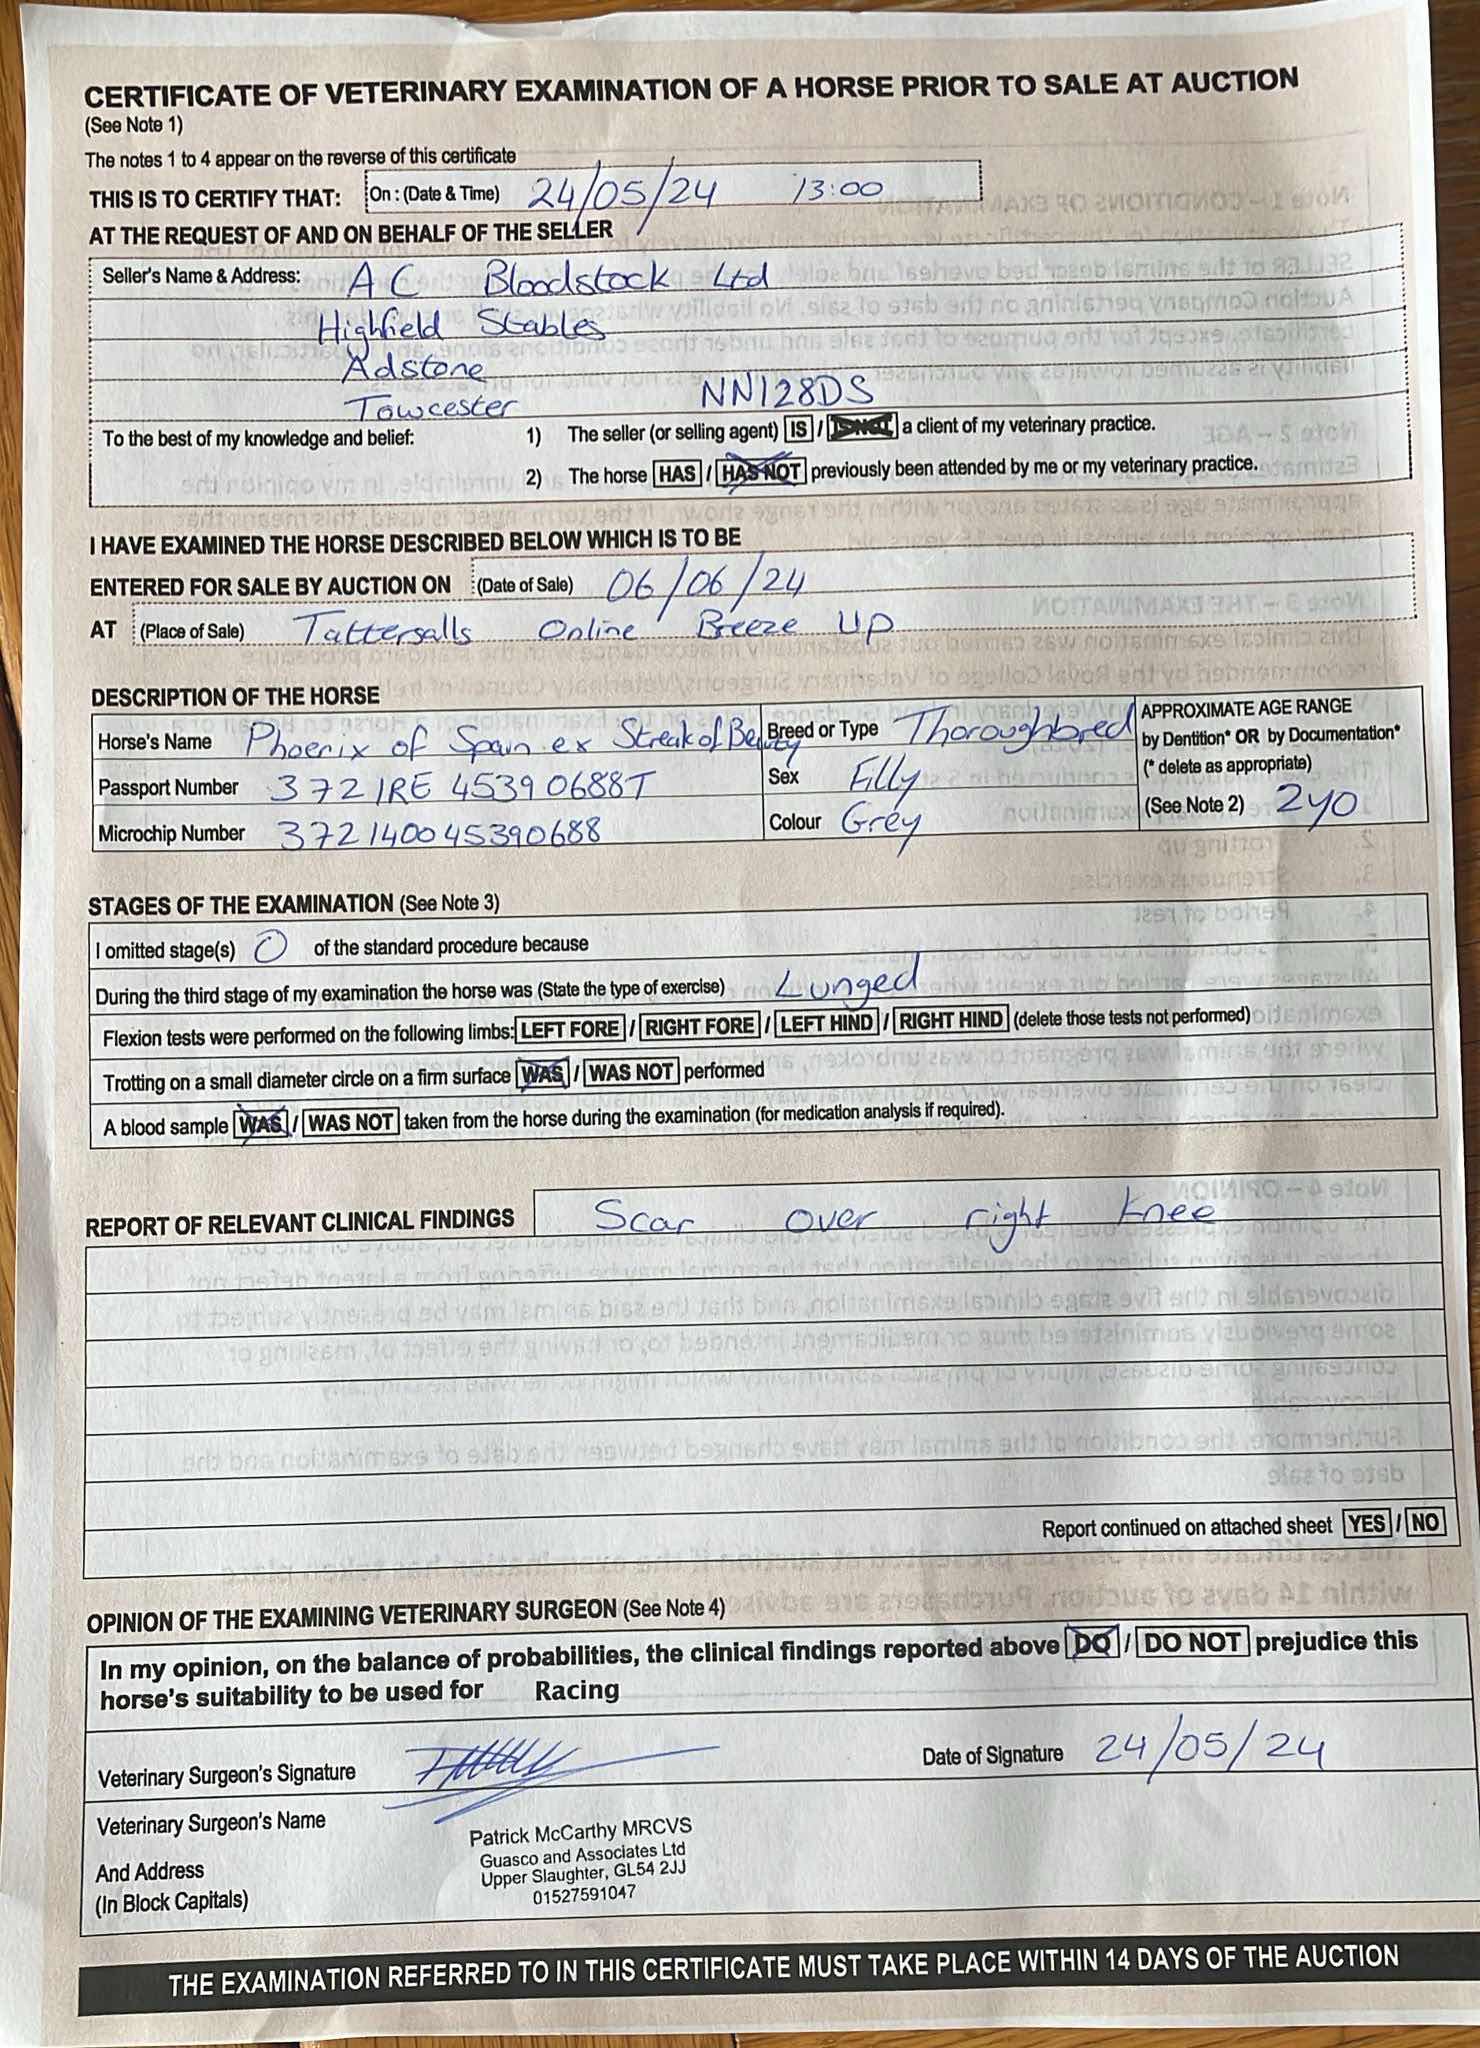 CERTIFICATE OF VETERINARY EXAMINATION OF A HORSE PRIOR TO SALE AT AUCTION
(See Note 1)
The notes 1 to 4 appear on the reverse of this certificate
THIS IS TO CERTIFY THAT: On : (Date & Time) 24/05/24 13:00
AT THE REQUEST OF AND ON BEHALF OF THE SELLER
Seller's Name & Address: A C Bloodstock Ltd
Highfield Stables
Adstone
Towcester NN128DS
To the best of my knowledge and belief: 1) The seller (or selling agent) IS / IS NOT a client of my veterinary practice.
2) The horse HAS / HAS NOT previously been attended by me or my veterinary practice.
I HAVE EXAMINED THE HORSE DESCRIBED BELOW WHICH IS TO BE
ENTERED FOR SALE BY AUCTION ON (Date of Sale) 06/06/24
AT (Place of Sale) Tattersalls Online Breeze Up
DESCRIPTION OF THE HORSE
Horse's Name Phoenix of Spain ex Streak of Beauty Breed or Type Thoroughbred APPROXIMATE AGE RANGE
by Dentition* OR by Documentation*
Passport Number 372 IRE 45390688T Sex Filly (* delete as appropriate)
Microchip Number 372140045390688 Colour Grey (See Note 2) 2yo
STAGES OF THE EXAMINATION (See Note 3)
I omitted stage(s) 0 of the standard procedure because
During the third stage of my examination the horse was (State the type of exercise) Lunged
Flexion tests were performed on the following limbs: LEFT FORE / RIGHT FORE / LEFT HIND / RIGHT HIND (delete those tests not performed)
Trotting on a small diameter circle on a firm surface WAS / WAS NOT performed
A blood sample WAS / WAS NOT taken from the horse during the examination (for medication analysis if required).
REPORT OF RELEVANT CLINICAL FINDINGS Scar over right knee
Report continued on attached sheet YES / NO
OPINION OF THE EXAMINING VETERINARY SURGEON (See Note 4)
In my opinion, on the balance of probabilities, the clinical findings reported above DO / DO NOT prejudice this
horse's suitability to be used for Racing
Veterinary Surgeon's Signature Date of Signature 24/05/24
Veterinary Surgeon's Name
And Address
(In Block Capitals)
Patrick McCarthy MRCVS
Guasco and Associates Ltd
Upper Slaughter, GL54 2JJ
01527591047
THE EXAMINATION REFERRED TO IN THIS CERTIFICATE MUST TAKE PLACE WITHIN 14 DAYS OF THE AUCTION